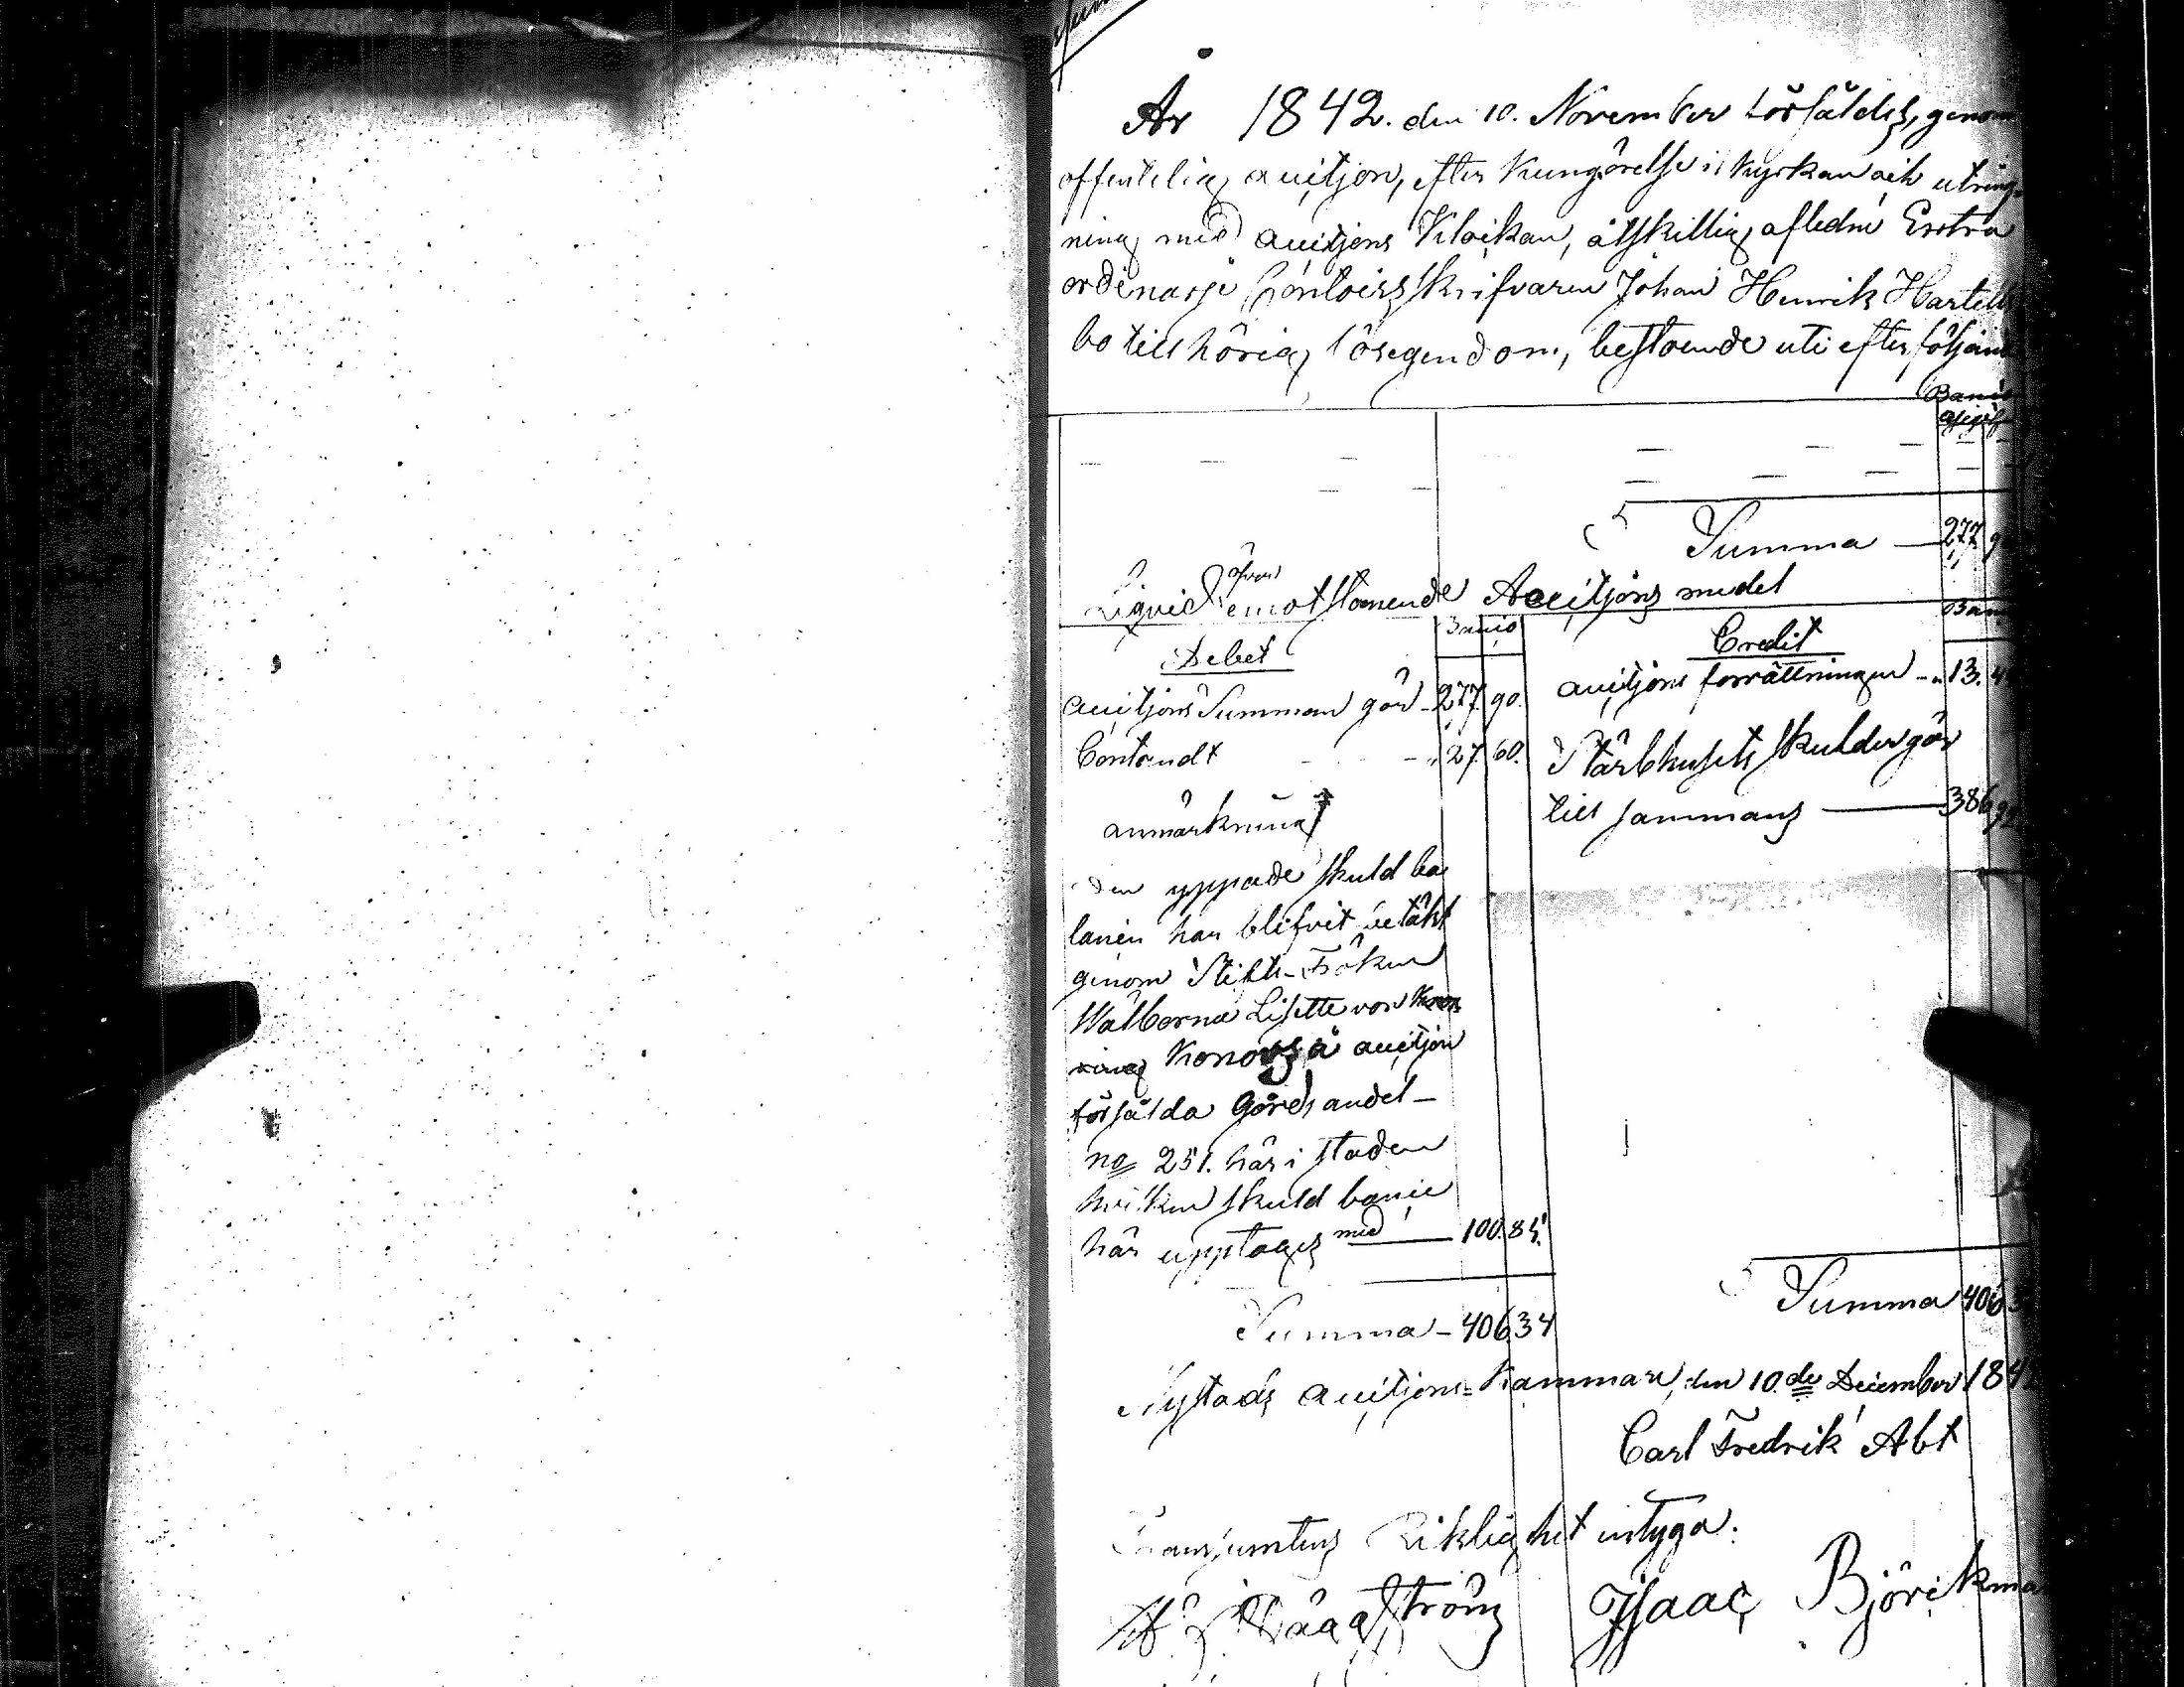 År 1842. den 10. November försäldes, genom
offentelig auctjon, efter Kungörelse i kyrkan och utring-
ning med auctjons Klockan, åtskillig aflednė Extra
ordinarje Contoirs skrifvaren Johan Henrik Hartell
bo tillhörig lösegendom, bestående uti efterföljand
Banco
Summa — 277 9
Liqvid öfvan emotstående Auctjons medel
Debet Banco Credit Ban
auctjons Summan gör - 277. 90. auctjons forrättningen - - 13. 4
Contandt - - 27. 60. Stärbhusets skulder gör
anmärkning till sammans — 386 92
den yppade skuld ba
lancen har blifvit betäkt
genom Stifts-Fröken
Walborna Lisette von
Konows å auctjon
försålda Gårds andel -
no 251. här i staden
hvilken skuld bance
här upptages med — 100. 84.
Summa - 406 34 Summa 406 3
Nystads auctjons-Kammare, den 10de December 184
Carl Fredrik Abt
Transumtens Riktighet intyga:
Häggström Isaac Björckma